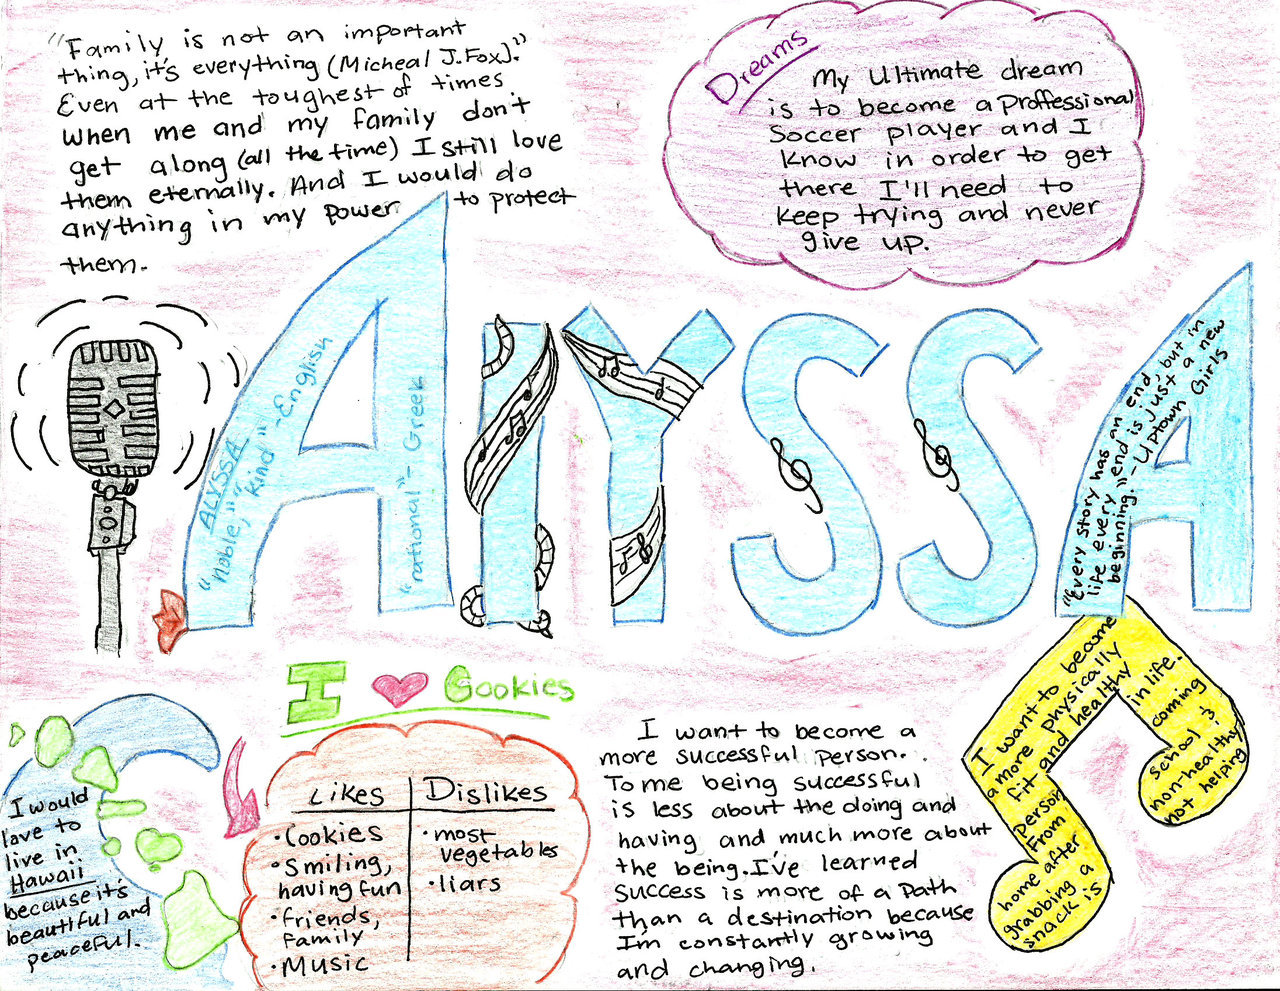 "Family is not an important
thing, it's everything (Micheal J. Fox)."
Even at the toughest of times
when me and my family don't
get along (all the time) I still love
them eternally. And I would do
anything in my power to protect
them.
Dreams
My Ultimate dream
is to become a proffessional
Soccer player and I
know in order to get
there I'll need to
keep trying and never
give up.
ALYSSA
ALYSSA
"noble,"
"kind" - English
"rational" - Greek
"Every story has an end, but in
life every end is just a new
beginning." - Uptown Girls
I Cookies
Likes
• Cookies
• Smiling,
having fun
• friends,
family
• Music
Dislikes
• most
vegetables
• liars
I would
love to
live in
Hawaii
because it's
beautiful and
peaceful.
I want to become a
more successful person.
To me being successful
is less about the doing and
having and much more about
the being. I've learned
success is more of a path
than a destination because
I'm constantly growing
and changing.
I want to become
a more physically
fit and healthy
person in life.
From coming
home after school &
grabbing a non-healthy
snack is not helping